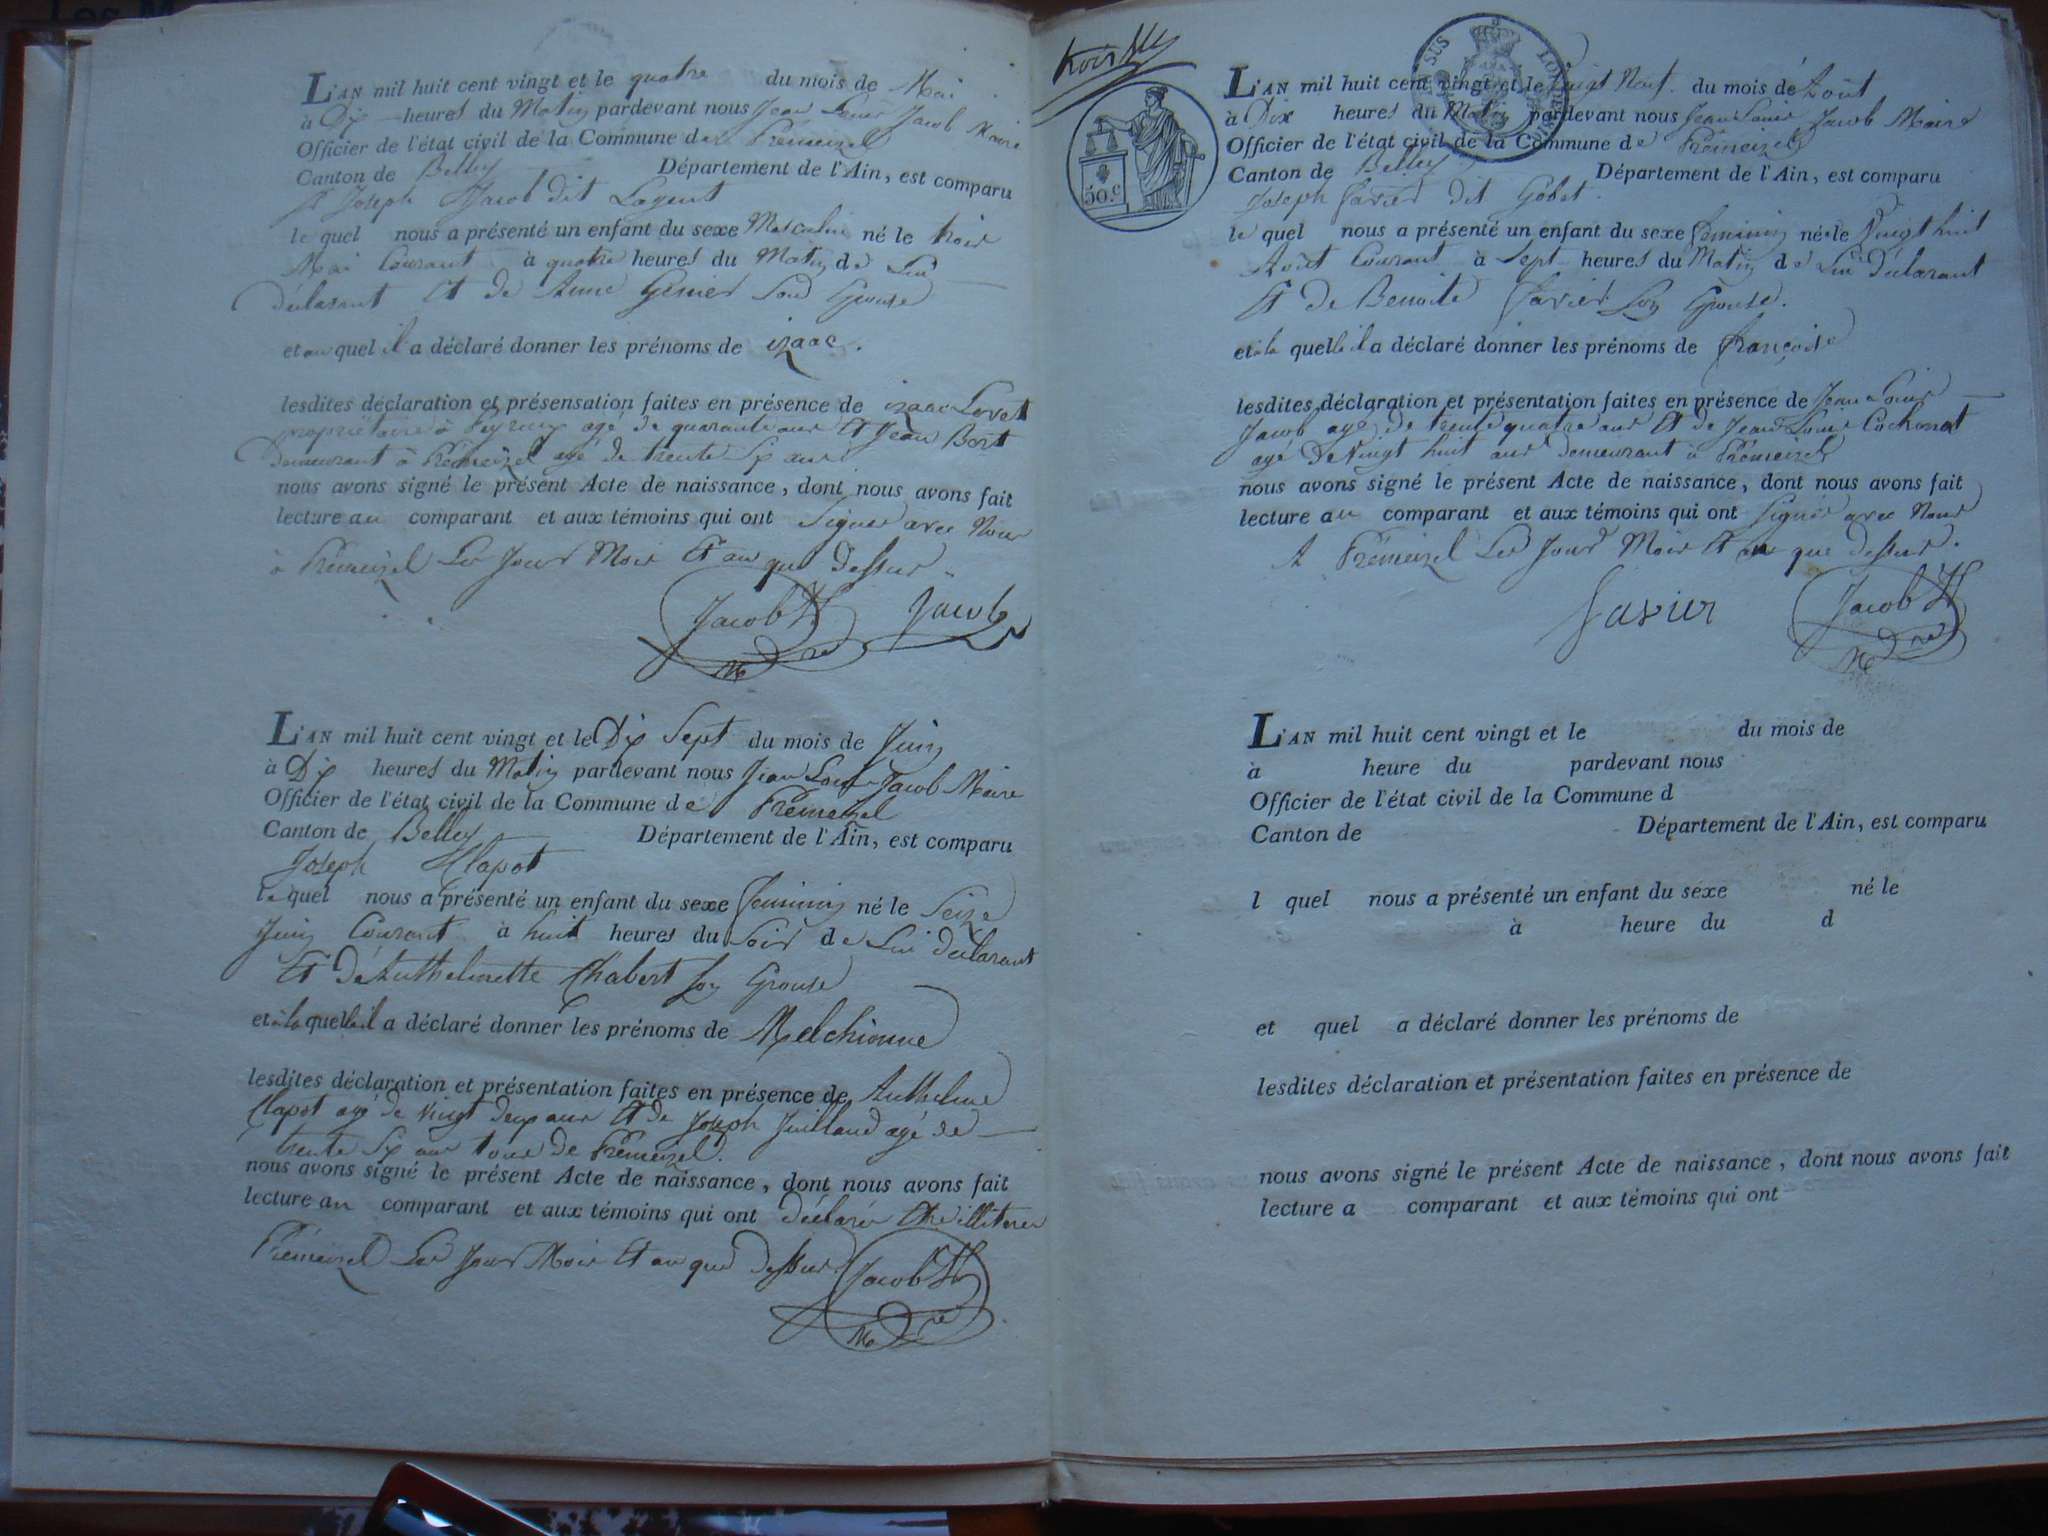 L'AN mil huit cent vingt et le quatre du mois de Mai
à Dix heures du Matin pardevant nous Jean Louis Jacob Maire
Officier de l'état civil de la Commune de Prémeizel
Canton de Belley Département de l'Ain, est comparu
Joseph Jacob dit Lagent
le quel nous a présenté un enfant du sexe Masculin né le trois
Mai Courant à quatre heures du Matin de Lui
déclarant Et de Anne Son Epouse
et au quel il a déclaré donner les prénoms de izaac.
lesdites déclaration et présensation faites en présence de izaac Lovet
propriétaire à Peyrieux agé de quarante ans Et Jean Bort
Demeurant à Prémeizel agé de trente Six ans
nous avons signé le présent Acte de naissance, dont nous avons fait
lecture au comparant et aux témoins qui ont Signés avec Nous
à Prémeizel Les Jour Mois Et an que dessus.
Jacob Jacob
L'AN mil huit cent vingt et le Dix Sept du mois de Juin
à Dix heures du Matin pardevant nous Jean Louis Jacob Maire
Officier de l'état civil de la Commune de Prémeizel
Canton de Belley Département de l'Ain, est comparu
Joseph Clapot
le quel nous a présenté un enfant du sexe feminin né le Seize
Juin Courant à huit heures du Soir de Lui déclarant
Et de Anthelmette Chabert Son Epouse
et à la quelle il a déclaré donner les prénoms de Melchionne
lesdites déclaration et présentation faites en présence de Anthelme
Clapot agé de vingt deux ans Et de Joseph Juilland agé de
trente Six ans tous de Prémeizel.
nous avons signé le présent Acte de naissance, dont nous avons fait
lecture au comparant et aux témoins qui ont déclaré Etre illiterés
Prémeizel Les Jour Mois Et an que dessus
Jacob
50.c
L'AN mil huit cent vingt et le Vingt Neuf du mois de Août
à Dix heures du Matin pardevant nous Jean Louis Jacob Maire
Officier de l'état civil de la Commune de Prémeizel
Canton de Belley Département de l'Ain, est comparu
Joseph Favier dit Gobet.
le quel nous a présenté un enfant du sexe feminin né le Vingt huit
Août Courant à Sept heures du Matin de Lui déclarant
Et de Benoite Favier Son Epouse.
et à la quelle il a déclaré donner les prénoms de françoise
lesdites déclaration et présentation faites en présence de Jean Louis
Jacob agé de trente quatre ans Et de Jean Louis Cochonat
agé de Vingt huit ans demeurant à Prémeizel
nous avons signé le présent Acte de naissance, dont nous avons fait
lecture au comparant et aux témoins qui ont Signés avec Nous
A Prémeizel Les Jour Mois Et an que dessus.
favier Jacob
L'AN mil huit cent vingt et le du mois de
à heure du pardevant nous
Officier de l'état civil de la Commune d
Canton de Département de l'Ain, est comparu
l quel nous a présenté un enfant du sexe né le
à heure du d
et quel a déclaré donner les prénoms de
lesdites déclaration et présentation faites en présence de
nous avons signé le présent Acte de naissance, dont nous avons fait
lecture a comparant et aux témoins qui ont